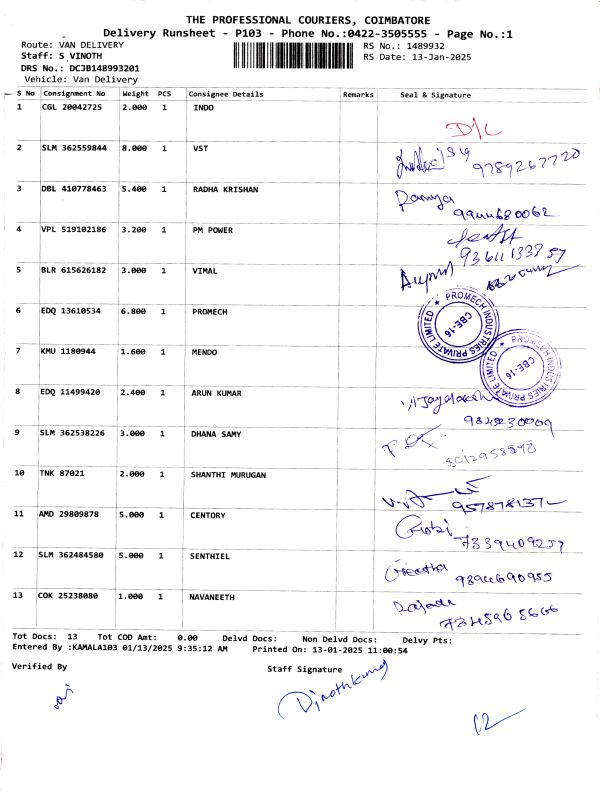 THE PROFESSIONAL COURIERS, COIMBATORE
Delivery Runsheet - P103 - Phone No.:0422-3505555 - Page No.:1
Route: VAN DELIVERY RS No.: 1489932
Staff: S VINOTH RS Date: 13-Jan-2025
DRS No.: DCJB148993201
Vehicle: Van Delivery
S No Consignment No Weight PCS Consignee Details Remarks Seal & Signature
1 CGL 20042725 2.000 1 INDO
D/L
2 SLM 362559844 8.000 1 VST
9789267720
3 DBL 410778463 5.400 1 RADHA KRISHAN
Ramya
9944680062
4 VPL 519102186 3.200 1 PM POWER
5 BLR 615626182 3.000 1 VIMAL
6 EDQ 13610534 6.800 1 PROMECH
PROMECH INDUSTRIES PRIVATE LIMITED
CBE-16
7 KMU 1180944 1.600 1 MENDO
PROMECH INDUSTRIES PRIVATE LIMITED
CBE-16
8 EDQ 11499420 2.400 1 ARUN KUMAR
9 SLM 362538226 3.000 1 DHANA SAMY
10 TNK 87021 2.000 1 SHANTHI MURUGAN
11 AMD 29809878 5.000 1 CENTORY
7339409257
12 SLM 362484580 5.000 1 SENTHIEL
Geetha
9894690955
13 COK 25238080 1.000 1 NAVANEETH
Tot Docs: 13 Tot COD Amt: 0.00 Delvd Docs: Non Delvd Docs: Delvy Pts:
Entered By :KAMALA103 01/13/2025 9:35:12 AM Printed On: 13-01-2025 11:00:54
Verified By Staff Signature